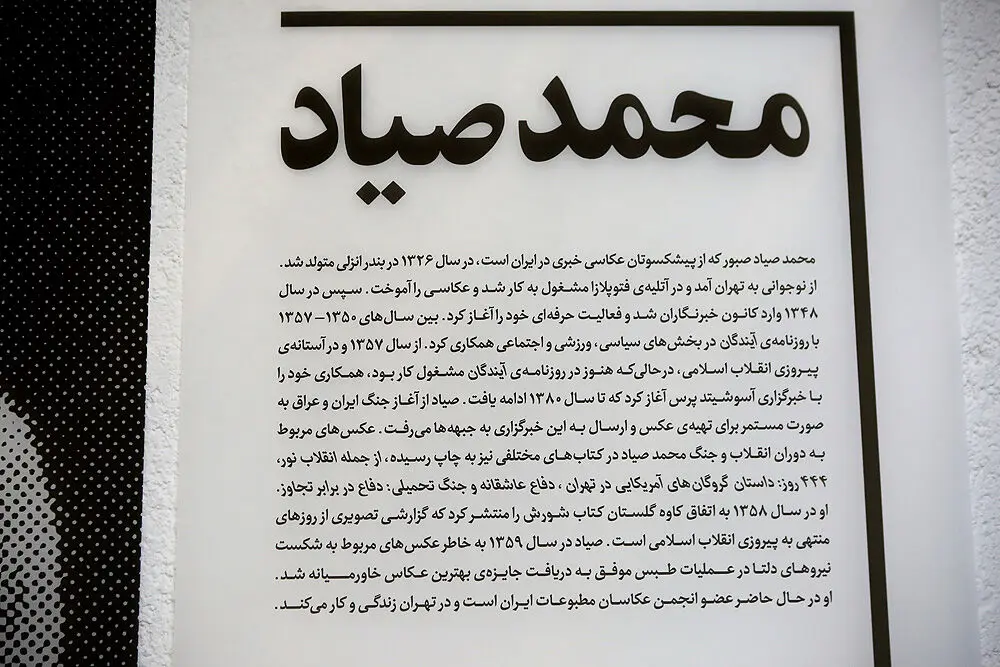 محمد صیاد
محمد صیاد صبور که از پیشکسوتان عکاسی خبری در ایران است، در سال ۱۳۲۶ در بندر انزلی متولد شد.
از نوجوانی به تهران آمد و در آتلیه‌ی فتوپلازا مشغول به کار شد و عکاسی را آموخت. سپس در سال
۱۳۴۸ وارد کانون خبرنگاران شد و فعالیت حرفه‌ای خود را آغاز کرد. بین سال‌های ۱۳۵۰– ۱۳۵۷
با روزنامه‌ی آیندگان در بخش‌های سیاسی، ورزشی و اجتماعی همکاری کرد. از سال ۱۳۵۷ و در آستانه‌ی
پیروزی انقلاب اسلامی، درحالی‌که هنوز در روزنامه‌ی آیندگان مشغول کار بود، همکاری خود را
با خبرگزاری آسوشیتد پرس آغاز کرد که تا سال ۱۳۸۰ ادامه یافت. صیاد از آغاز جنگ ایران و عراق به
صورت مستمر برای تهیه‌ی عکس و ارسال به این خبرگزاری به جبهه‌ها می‌رفت. عکس‌های مربوط
به دوران انقلاب و جنگ محمد صیاد در کتاب‌های مختلفی نیز به چاپ رسیده، از جمله انقلاب نور،
۴۴۴ روز: داستان گروگان‌های آمریکایی در تهران ، دفاع عاشقانه و جنگ تحمیلی: دفاع در برابر تجاوز.
او در سال ۱۳۵۸ به اتفاق کاوه گلستان کتاب شورش را منتشر کرد که گزارشی تصویری از روزهای
منتهی به پیروزی انقلاب اسلامی است. صیاد در سال ۱۳۵۹ به خاطر عکس‌های مربوط به شکست
نیروهای دلتا در عملیات طبس موفق به دریافت جایزه‌ی بهترین عکاس خاورمیانه شد.
او در حال حاضر عضو انجمن عکاسان مطبوعات ایران است و در تهران زندگی و کار می‌کند.